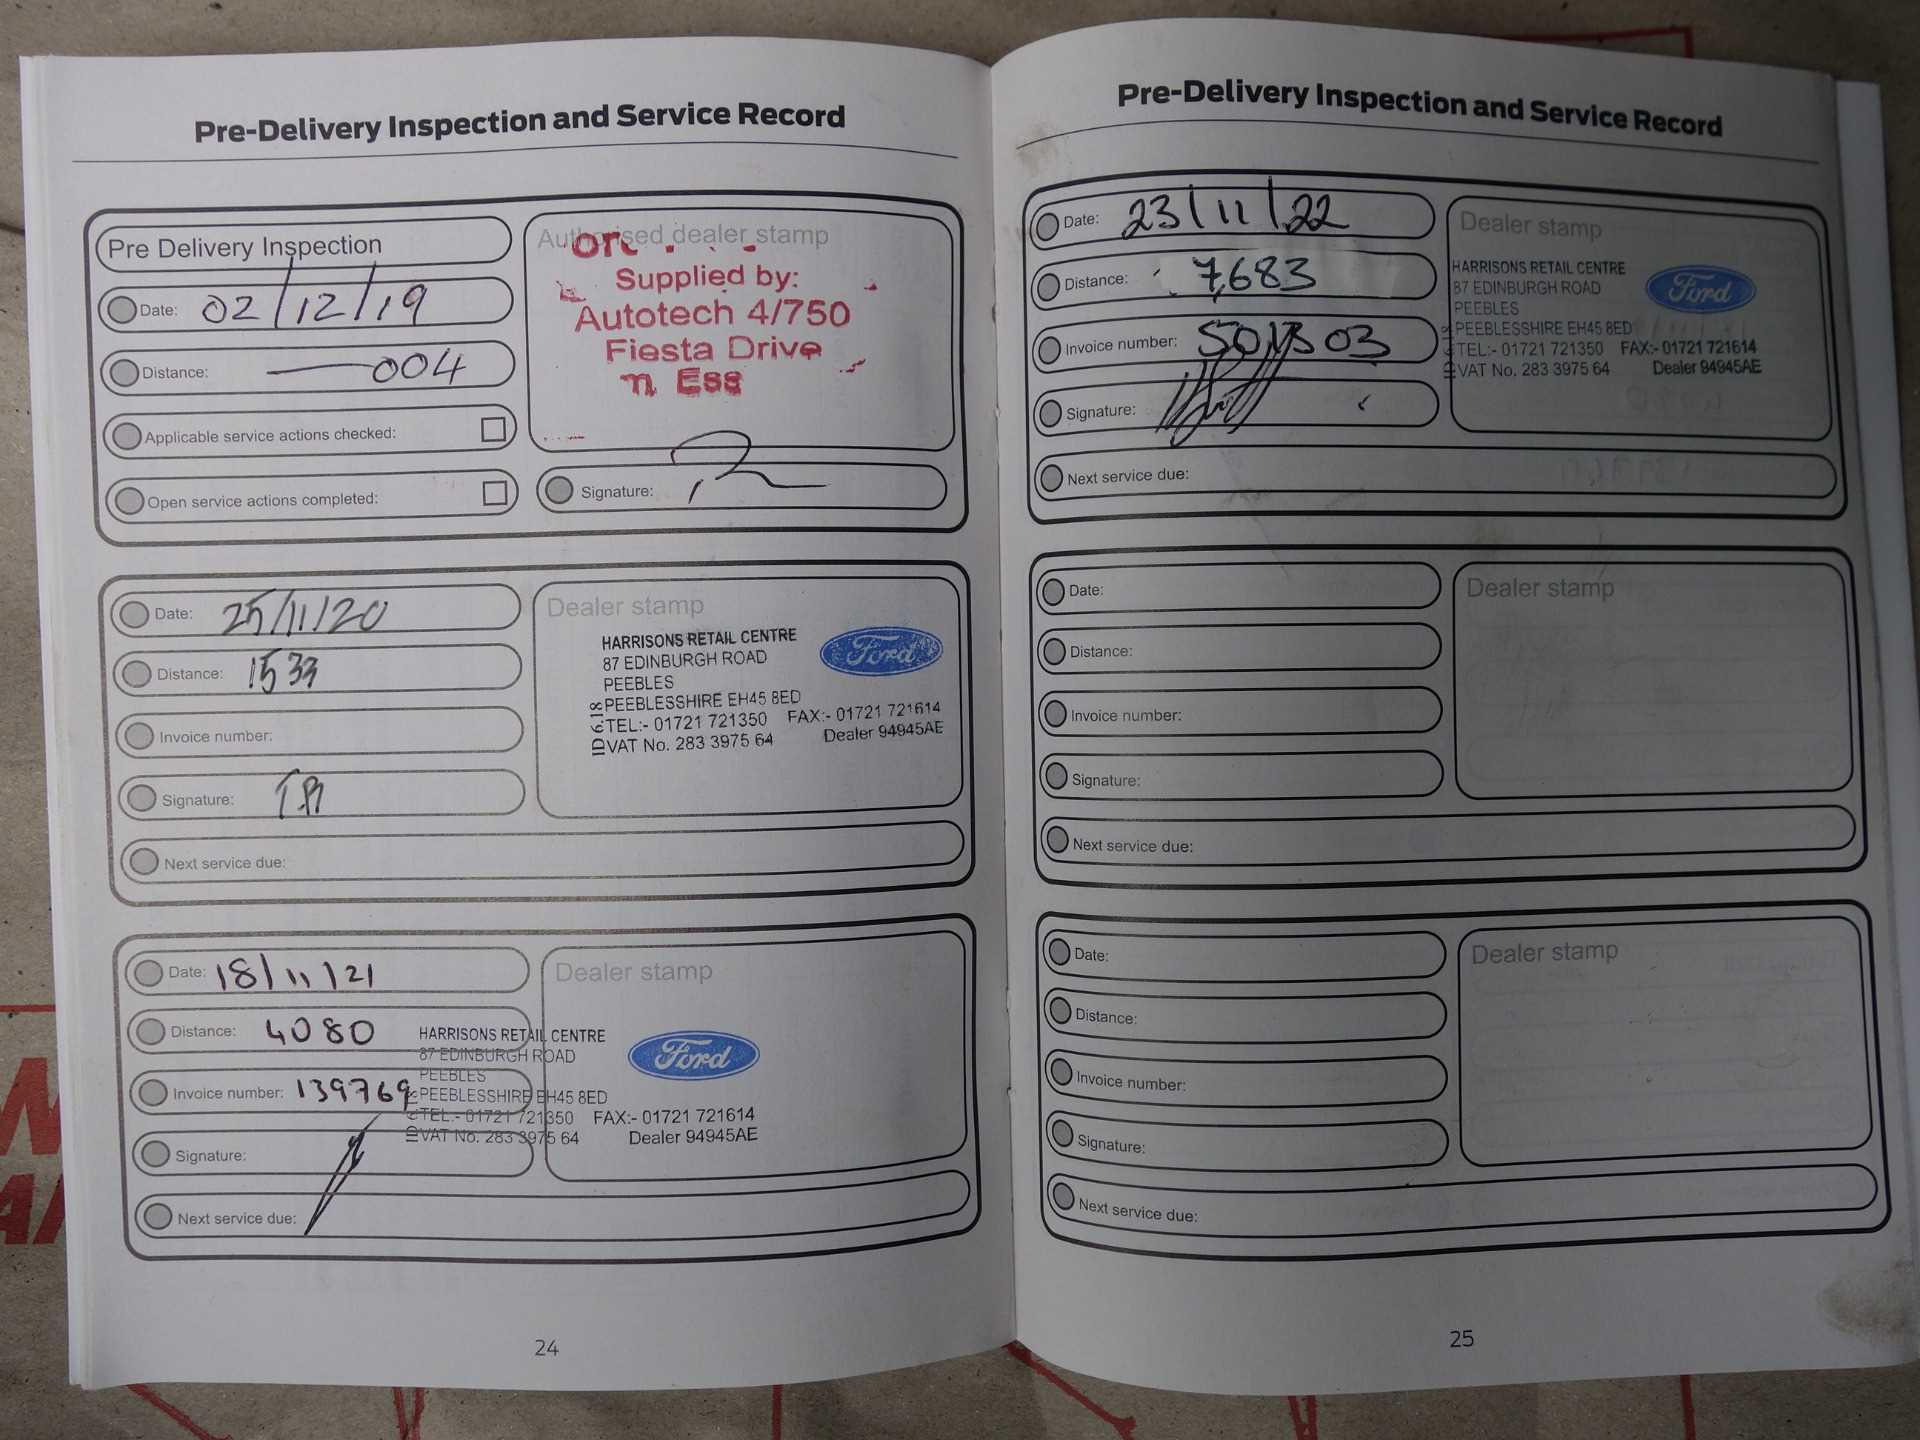 Pre-Delivery Inspection and Service Record
Pre Delivery Inspection
Date: 02/12/19
Distance: —004
Applicable service actions checked:
Open service actions completed:
Authorised dealer stamp
Supplied by:
Autotech 4/750
Fiesta Drive
Ess
Signature:
Date: 25/11/20
Distance: 1533
Invoice number:
Signature:
Next service due:
Dealer stamp
HARRISONS RETAIL CENTRE
87 EDINBURGH ROAD
PEEBLES
PEEBLESSHIRE EH45 8ED
TEL:- 01721 721350 FAX:- 01721 721614
VAT No. 283 3975 64 Dealer 94945AE
Ford
Date: 18/11/21
Distance: 4080
Invoice number: 139769
Signature:
Next service due:
Dealer stamp
HARRISONS RETAIL CENTRE
87 EDINBURGH ROAD
PEEBLES
PEEBLESSHIRE EH45 8ED
TEL:- 01721 721350 FAX:- 01721 721614
VAT No. 283 3975 64 Dealer 94945AE
Ford
24
Pre-Delivery Inspection and Service Record
Date: 23/11/22
Distance: 7,683
Invoice number:
Signature:
Next service due:
Dealer stamp
HARRISONS RETAIL CENTRE
87 EDINBURGH ROAD
PEEBLES
PEEBLESSHIRE EH45 8ED
TEL:- 01721 721350 FAX:- 01721 721614
VAT No. 283 3975 64 Dealer 94945AE
Ford
Date:
Distance:
Invoice number:
Signature:
Next service due:
Dealer stamp
Date:
Distance:
Invoice number:
Signature:
Next service due:
Dealer stamp
25